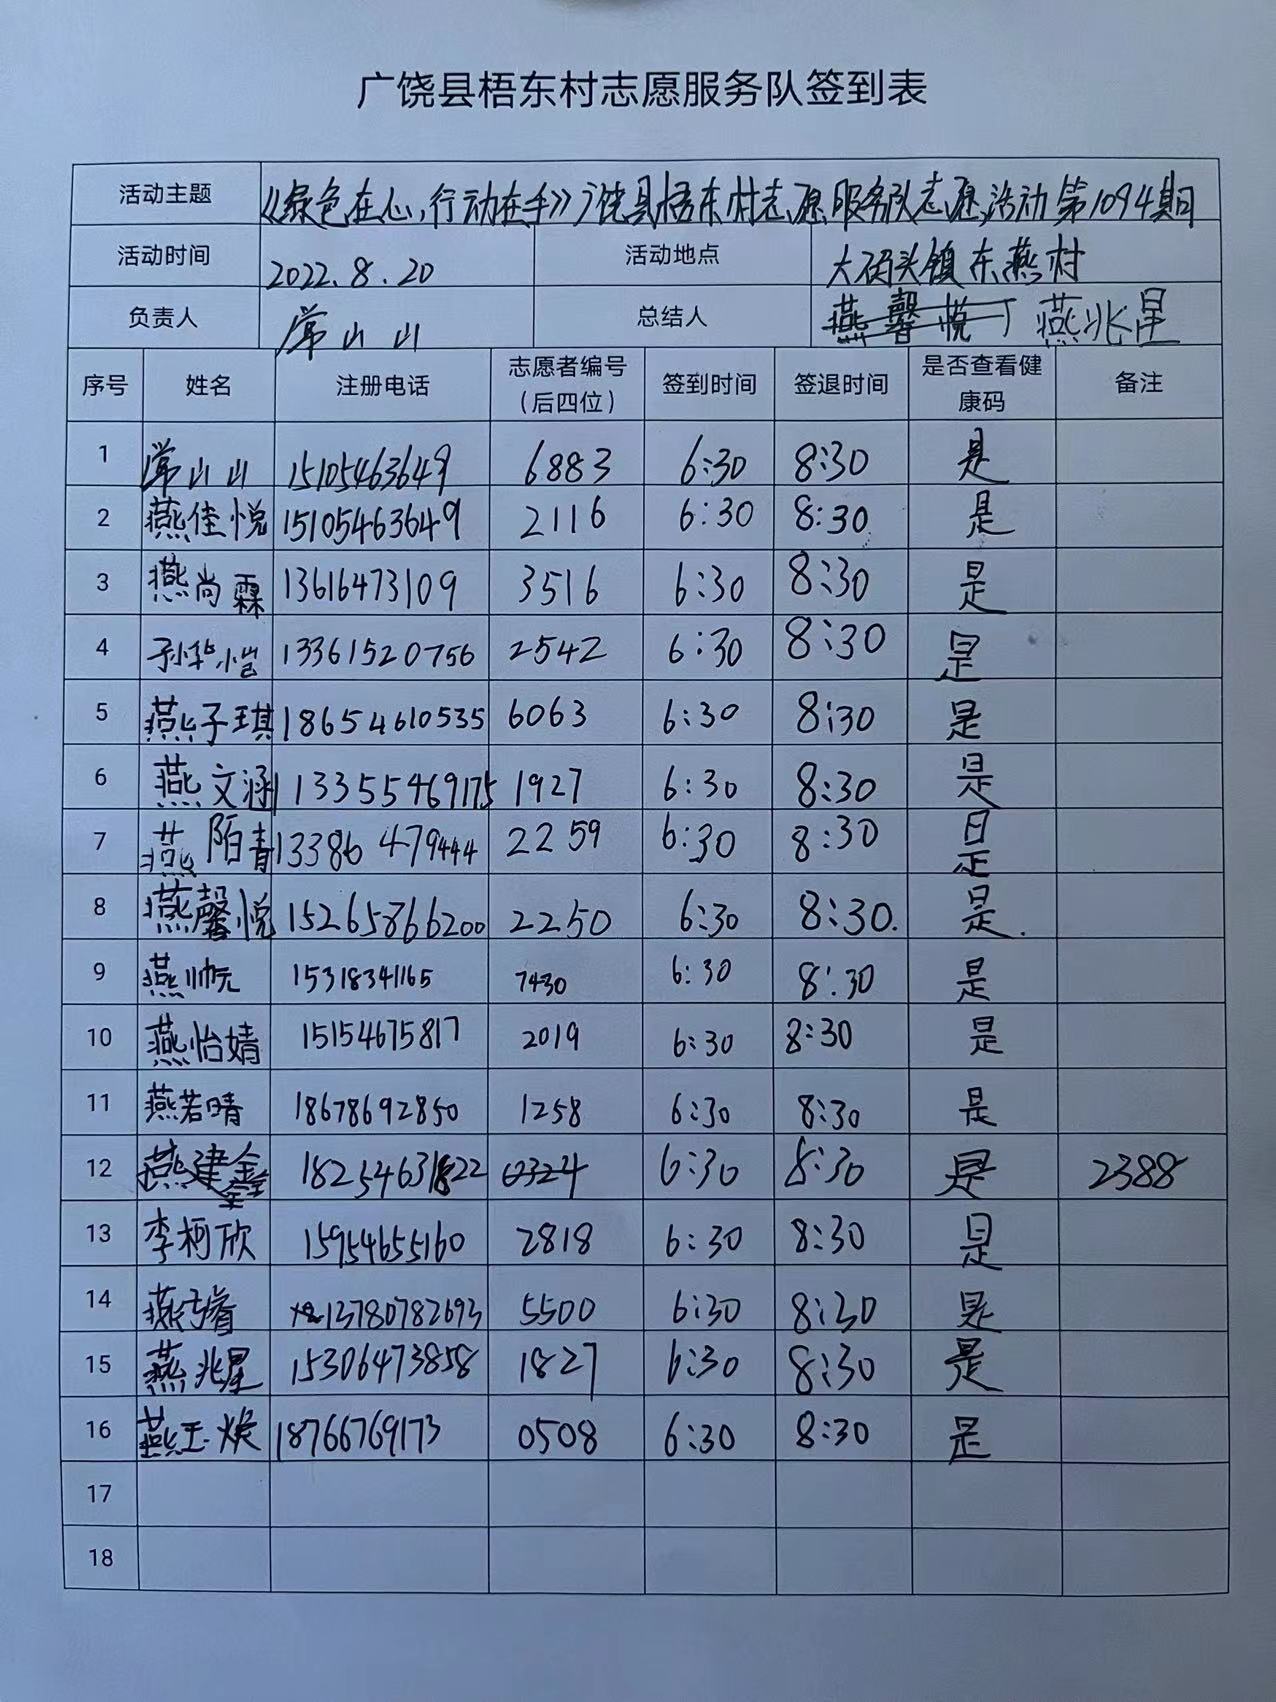 广饶县梧东村志愿服务队签到表
活动主题 《绿色在心,行动在手》广饶县梧东村志愿服务队志愿活动第1094期日
活动时间 2022.8.20 活动地点 大码头镇东燕村
负责人 常山山 总结人 燕馨悦 燕兆星
序号 姓名 注册电话 志愿者编号(后四位) 签到时间 签退时间 是否查看健康码 备注
1 常山山 15105463649 6883 6:30 8:30 是
2 燕佳悦 15105463649 2116 6:30 8:30 是
3 燕尚霖 13616473109 3516 6:30 8:30 是
4 孙华恺 13361520756 2542 6:30 8:30 是
5 燕子琪 18654610535 6063 6:30 8:30 是
6 燕文涵 13355469175 1927 6:30 8:30 是
7 燕陌青 13386479444 2259 6:30 8:30 是
8 燕馨悦 15265866200 2250 6:30 8:30. 是.
9 燕帅元 15318341165 7430 6:30 8:30 是
10 燕怡婧 15154675817 2019 6:30 8:30 是
11 燕若晴 18678692850 1258 6:30 8:30 是
12 燕建鑫 18254631822 0324 6:30 8:30 是 2388
13 李柯欣 15954655160 2818 6:30 8:30 是
14 燕 睿 13780782693 5500 6:30 8:30 是
15 燕兆星 15306473858 1827 6:30 8:30 是
16 燕玉焕 18766769173 0508 6:30 8:30 是
17
18